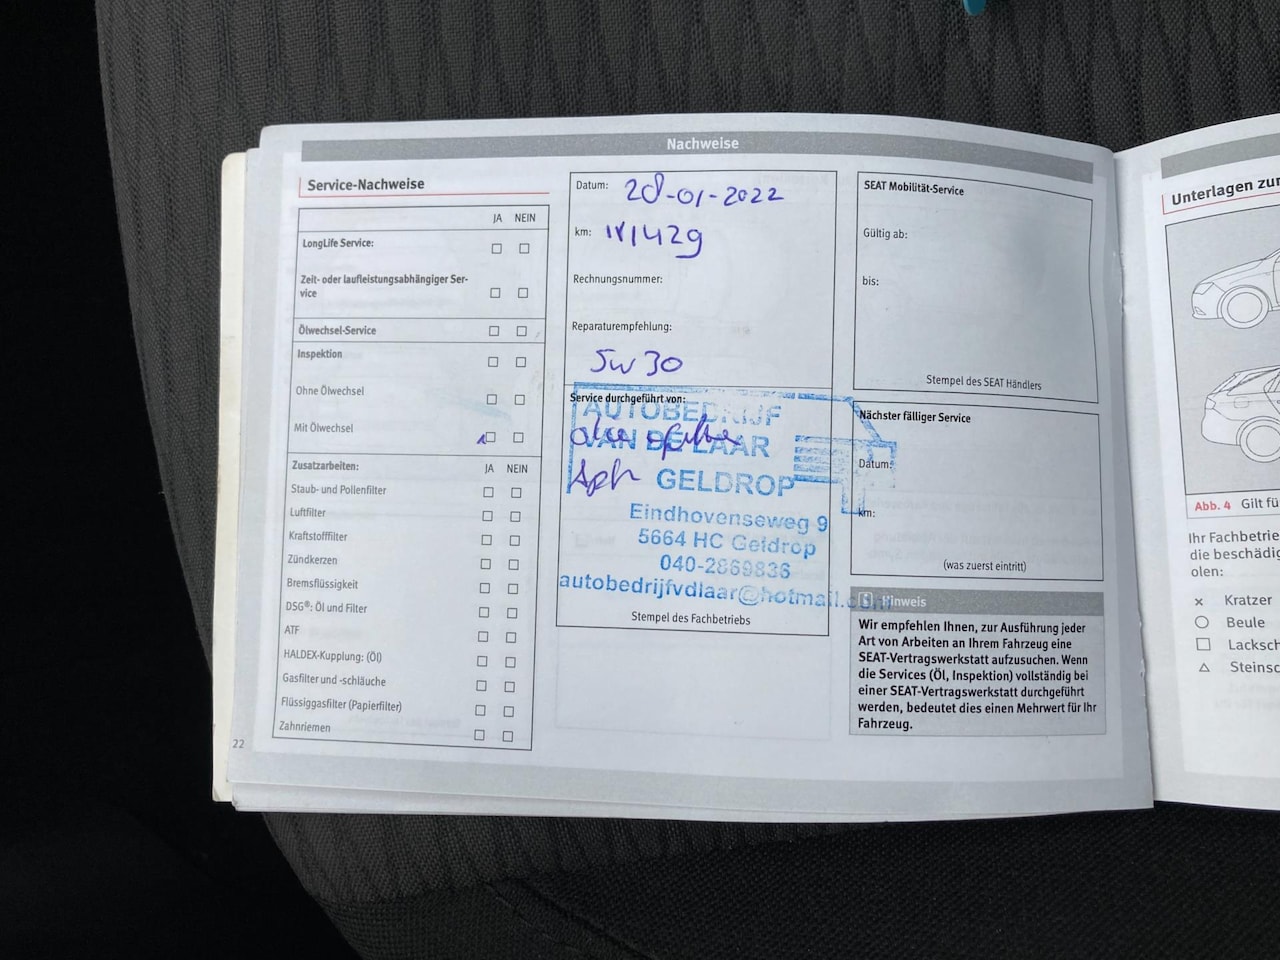 Nachweise
Service-Nachweise
JA NEIN
LongLife Service:
Zeit- oder laufleistungsabhängiger Ser-
vice
Ölwechsel-Service
Inspektion
Ohne Ölwechsel
Mit Ölwechsel
Zusatzarbeiten: JA NEIN
Staub- und Pollenfilter
Luftfilter
Kraftstofffilter
Zündkerzen
Bremsflüssigkeit
DSG®: Öl und Filter
ATF
HALDEX-Kupplung: (Öl)
Gasfilter und -schläuche
Flüssiggasfilter (Papierfilter)
Zahnriemen
22
Datum: 28-01-2022
km:
Rechnungsnummer:
Reparaturempfehlung:
5w30
Service durchgeführt von:
AUTOBEDRIJF
VAN DE LAAR
GELDROP
Eindhovenseweg 9
5664 HC Geldrop
040-2869836
autobedrijfvdlaar@hotmail.com
Stempel des Fachbetriebs
SEAT Mobilität-Service
Gültig ab:
bis:
Stempel des SEAT Händlers
Nächster fälliger Service
Datum:
km:
(was zuerst eintritt)
Hinweis
Wir empfehlen Ihnen, zur Ausführung jeder
Art von Arbeiten an Ihrem Fahrzeug eine
SEAT-Vertragswerkstatt aufzusuchen. Wenn
die Services (Öl, Inspektion) vollständig bei
einer SEAT-Vertragswerkstatt durchgeführt
werden, bedeutet dies einen Mehrwert für Ihr
Fahrzeug.
Unterlagen zur
Abb. 4 Gilt fü
Ihr Fachbetrie
die beschädig
olen:
Kratzer
Beule
Lacksch
Steinsc